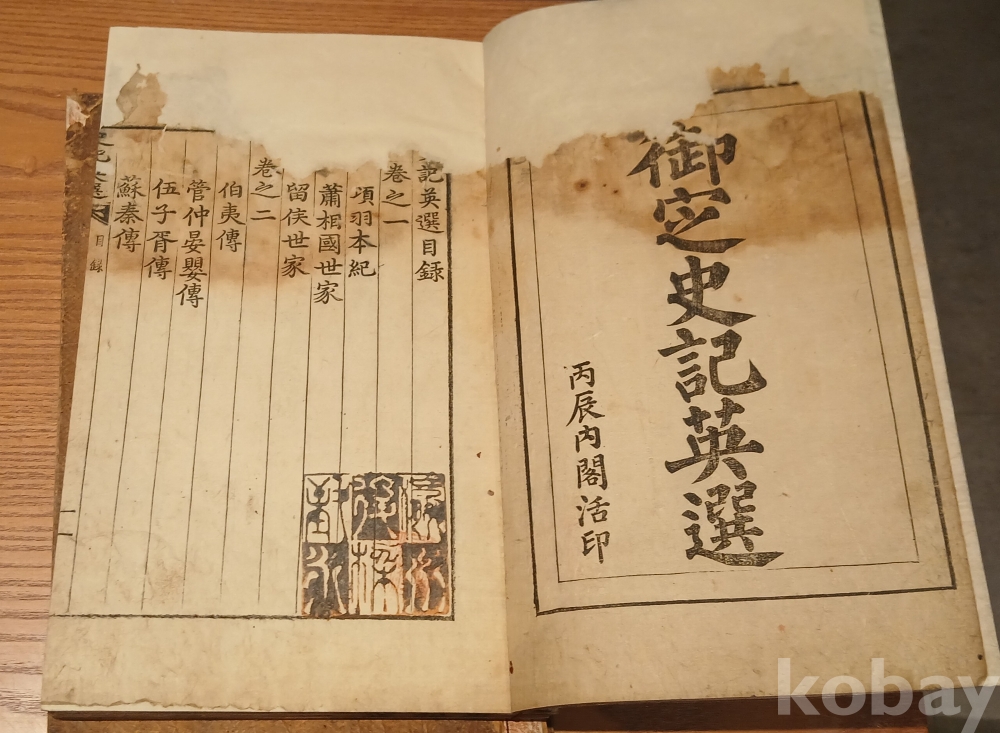 御定史記英選
丙辰內閣活印
記英選目録
卷之一
項羽本紀
蕭相國世家
留侯世家
卷之二
伯夷傳
管仲晏嬰傳
伍子胥傳
蘇秦傳
目録
kobay